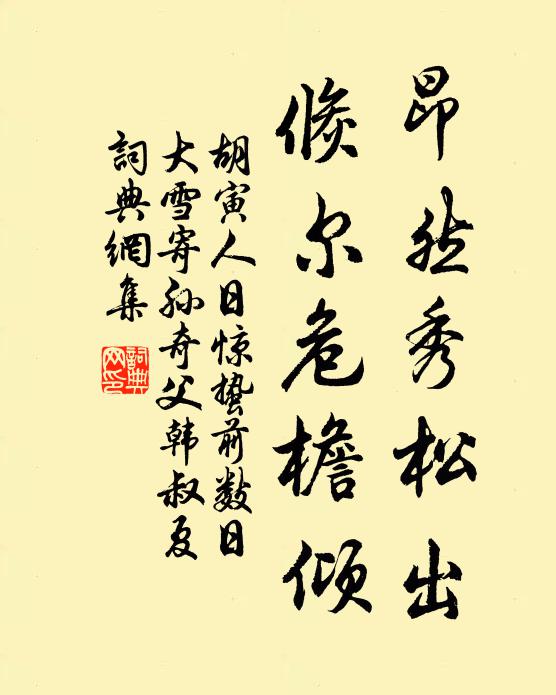 昂然秀松出
倏尔危檐倾
胡寅人日惊蛰前数日
大雪寄孙奇父韩叔夏
詞典網集
詞典
网印